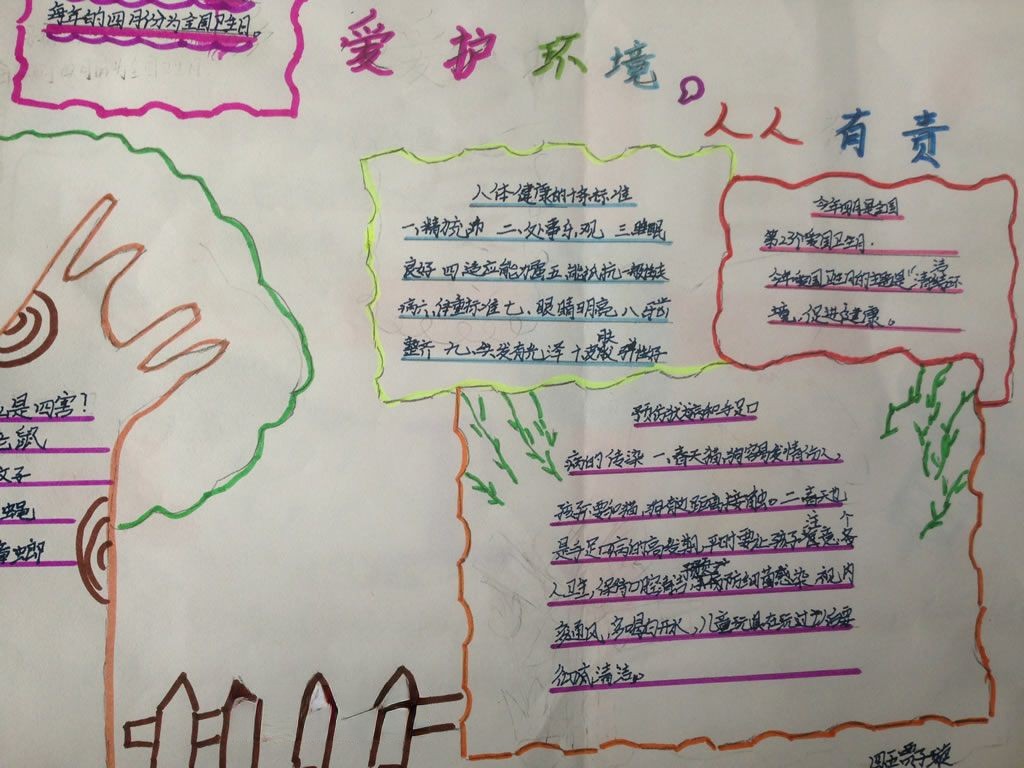 每年的四月份为全国卫生日。
爱护环境。
人人有责
人体健康的十条标准
一、精力充沛 二、处事乐观 三睡眠
良好 四 适应能力强 五 能抵抗一般性疾
病 六、体重标准 七、眼睛明亮 八 牙齿
整齐 九、头发有光泽 十皮肤弹性好
今年四月是全国
第23个爱国卫生月.
今年爱国卫生月的主题是“清洁环
境,促进健康。
是四害?
老鼠
蚊子
蝇
蟑虫郎
预防狂犬病和手足口
病的传染 一、春天猫、狗容易发情伤人,
孩子要和猫、狗 距离接触。二春天也
是手足口病的高发期,平时要让孩子注意个
人卫生,保持口腔清洁 预防细菌感染,室内
多通风,多喝白开水,儿童玩具在玩过 后要
彻底清洁。